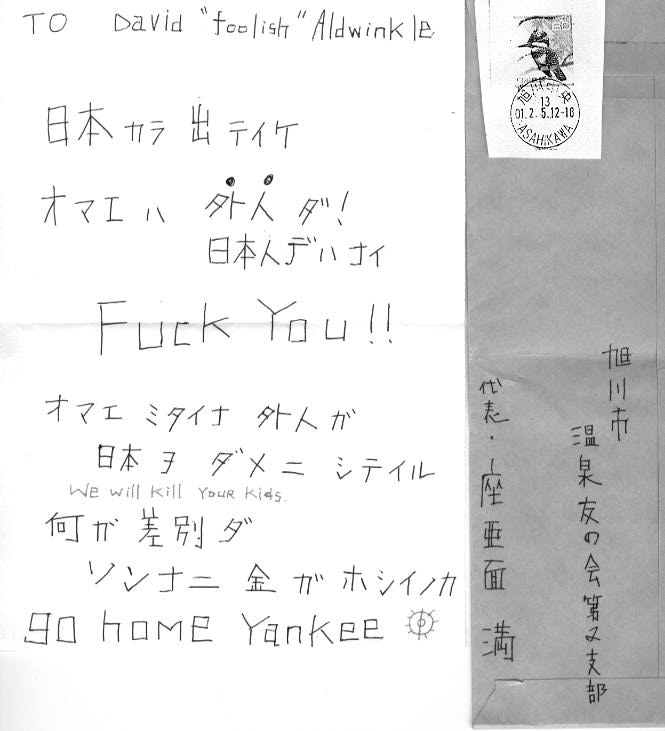 TO David "foolish" Aldwinkle
日本カラ出テイケ
オマエハ外人ダ!
日本人デハナイ
Fuck You!!
オマエミタイナ外人ガ
日本ヲダメニシテイル
We will kill YOUR Kids.
何ガ差別ダ
ソンナニ金ガホシイノカ
go home Yankee
80
旭川中央
13
01.2.5.12-18
ASAHIKAWA
旭川市
温泉友の会第又支部
代表・座亜面 満